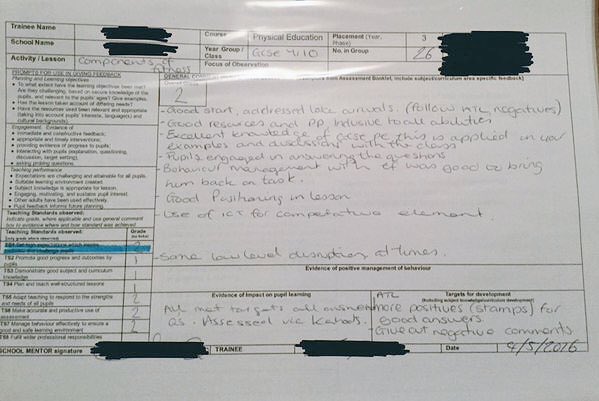 Trainee Name
School Name
Course Physical Education
Placement (Year, Phase) 3
Year Group / Class GCSE Y10
No. in Group 26
Activity / Lesson Components of fitness
Focus of Observation
PROMPTS FOR USE IN GIVING FEEDBACK
Planning and Learning objectives
To what extent have the learning objectives been met? Are they challenging, based on secure knowledge of the pupils, and relevant to the pupils' ages? Give examples.
Has the lesson taken account of differing needs?
Have the resources used been relevant and appropriate (taking into account pupils' interests, language(s) and cultural backgrounds).
Engagement. Evidence of
immediate and constructive feedback;
appropriate and timely interventions;
providing evidence of progress to pupils;
interacting with pupils (explanation, questioning, discussion, target setting);
asking probing questions.
Teaching performance
Expectations are challenging and attainable for all pupils.
Suitable learning environment created.
Subject knowledge is appropriate for lesson.
Engaging, motivating, and sustains pupil interest.
Other adults have been used effectively.
Pupil feedback informs future planning.
2
- Good start, addressed late arrivals. (Follow ATL negatives)
- Good resources and PP. Inclusive to all abilities
- Excellent knowledge of GCSE PE this is applied in your
examples and discussions with the class
- Pupils engaged in answering the questions
- Behaviour management with was good to bring
him back on task.
- Good Positioning in lesson
- Use of ICT for competative element.
- Some low level disruption at times.
Teaching Standards observed:
Indicate grade, where applicable and use general comment box to evidence where and how standard was achieved
Teaching Standards observed: (only grade where observed)
Grade
TS1 Set high expectations which inspire, motivate and challenge pupils 2
TS2 Promote good progress and outcomes by pupils 1
TS3 Demonstrate good subject and curriculum knowledge 1
TS4 Plan and teach well-structured lessons 1
TS5 Adapt teaching to respond to the strengths and needs of all pupils 2
TS6 Make accurate and productive use of assessment 2
TS7 Manage behaviour effectively to ensure a good and safe learning environment 2
TS8 Fulfil wider professional responsibilities
Evidence of positive management of behaviour
Evidence of Impact on pupil learning
All met targets all answered
Qs. Assessed via Kahoot.
Targets for development
(including subject knowledge/curriculum development)
ATL
more positives (stamps) for
good answers.
- Give out negative comments
SCHOOL MENTOR signature
TRAINEE
Date 4/5/2016